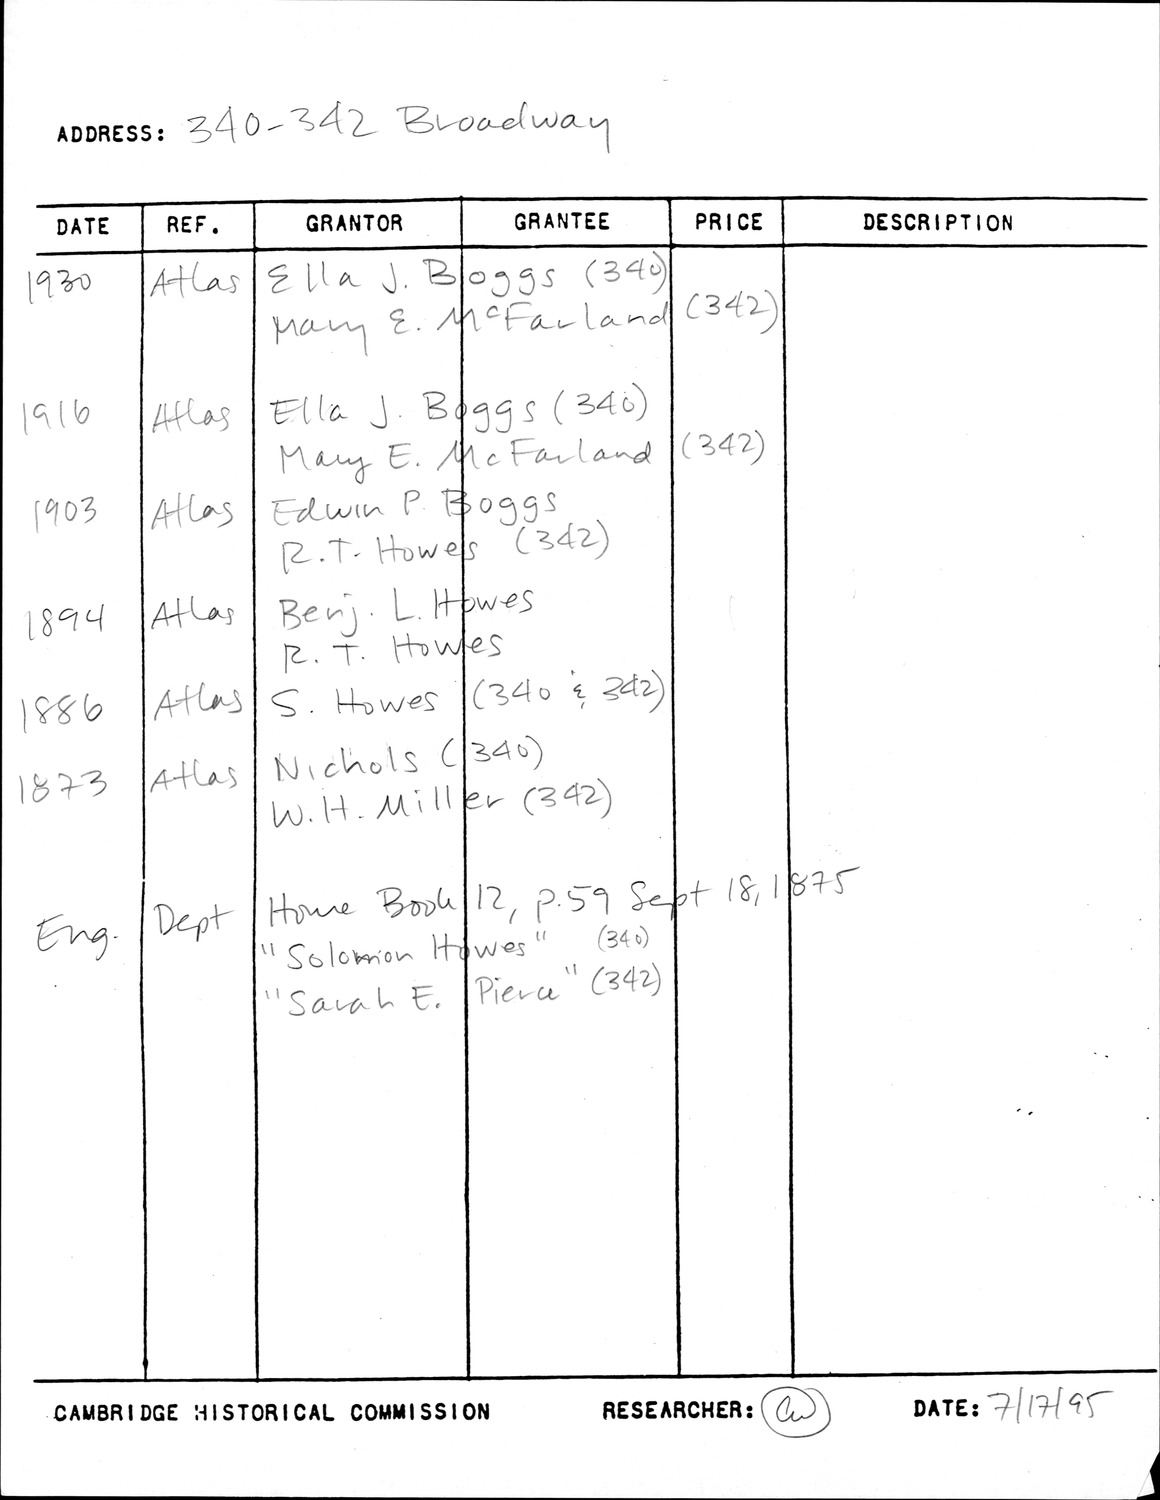 ADDRESS: 340-342 Broadway
DATE REF. GRANTOR GRANTEE PRICE DESCRIPTION
1930 Atlas Ella J. Boggs (340)
Mary E. McFarland (342)
1916 Atlas Ella J. Boggs (340)
Mary E. McFarland (342)
1903 Atlas Edwin P. Boggs
R.T. Howes (342)
1894 Atlas Benj. L. Howes
R. T. Howes
1886 Atlas S. Howes (340 & 342)
1873 Atlas Nichols (340)
W.H. Miller (342)
Eng. Dept House Book 12, p.59 Sept 18, 1875
"Solomon Howes" (340)
"Sarah E. Pierce" (342)
CAMBRIDGE HISTORICAL COMMISSION RESEARCHER: DATE: 7/17/95